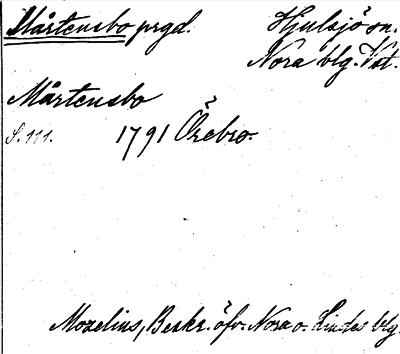 Mårtensbo prgd. Hjulsjö sn.
Nora blg. Vst.
Mårtensbo
S. 111. 1791 Örebro.
Mozelius, Beskr. öfv. Nora o. Lindes blg.